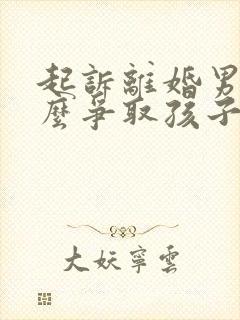 起訴離婚男
麼爭取孩子
大妖寧雲